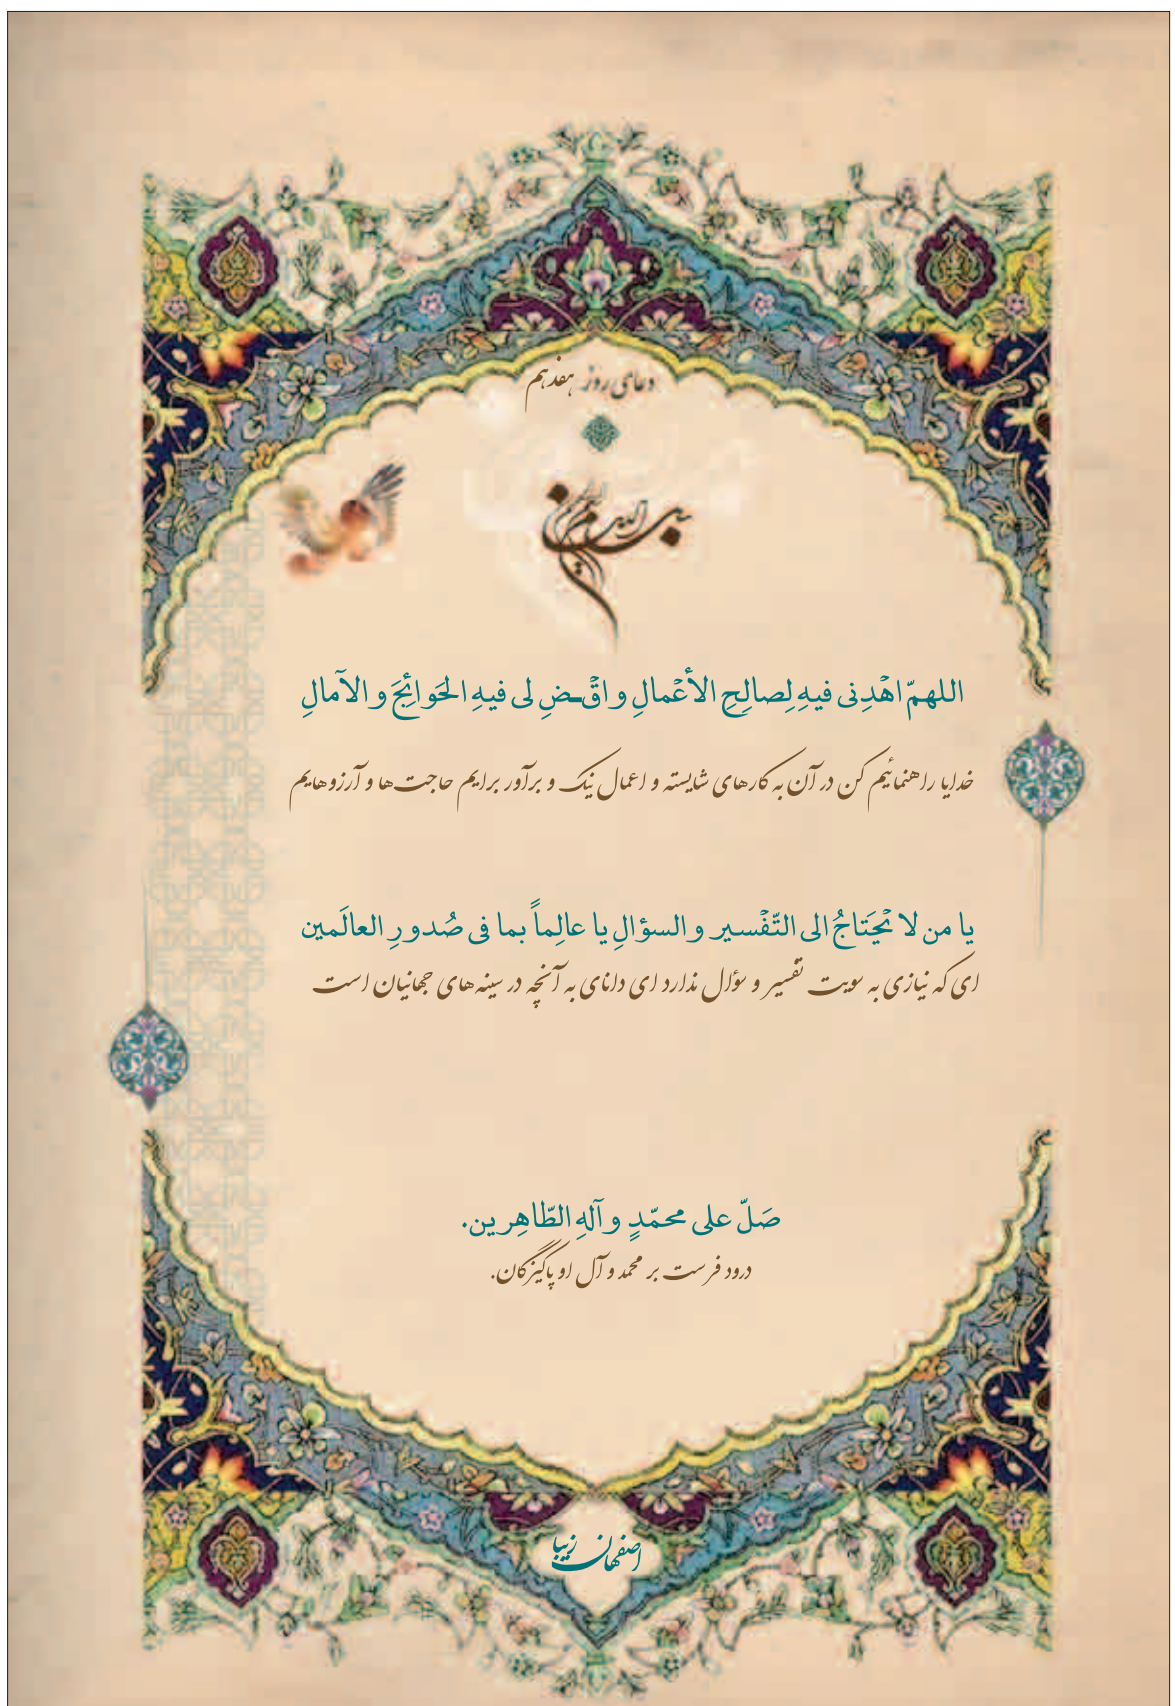 دعای روز هفدهم
بسم الله الرحمن الرحیم
اللهمّ اهْدِنی فیهِ لِصالِحِ الأعْمالِ و اقْـضِ لی فیهِ الحَوائِجَ و الآمالِ
خدایا راهنمائیم کن در آن به کارهای شایسته و اعمال نیک و برآور برایم حاجت‌ها و آرزوهایم
یا من لا یَحْتاجُ الی التّفْسیر و السؤالِ یا عالِماً بما فی صُدورِ العالَمین
ای که نیازی به سویت تفسیر و سؤال ندارد ای دانای به آنچه در سینه‌های جهانیان است
صَلّ علی محمّدٍ و آلهِ الطّاهِرین.
درود فرست بر محمد و آل او پاکیزگان.
اصفهان زیبا